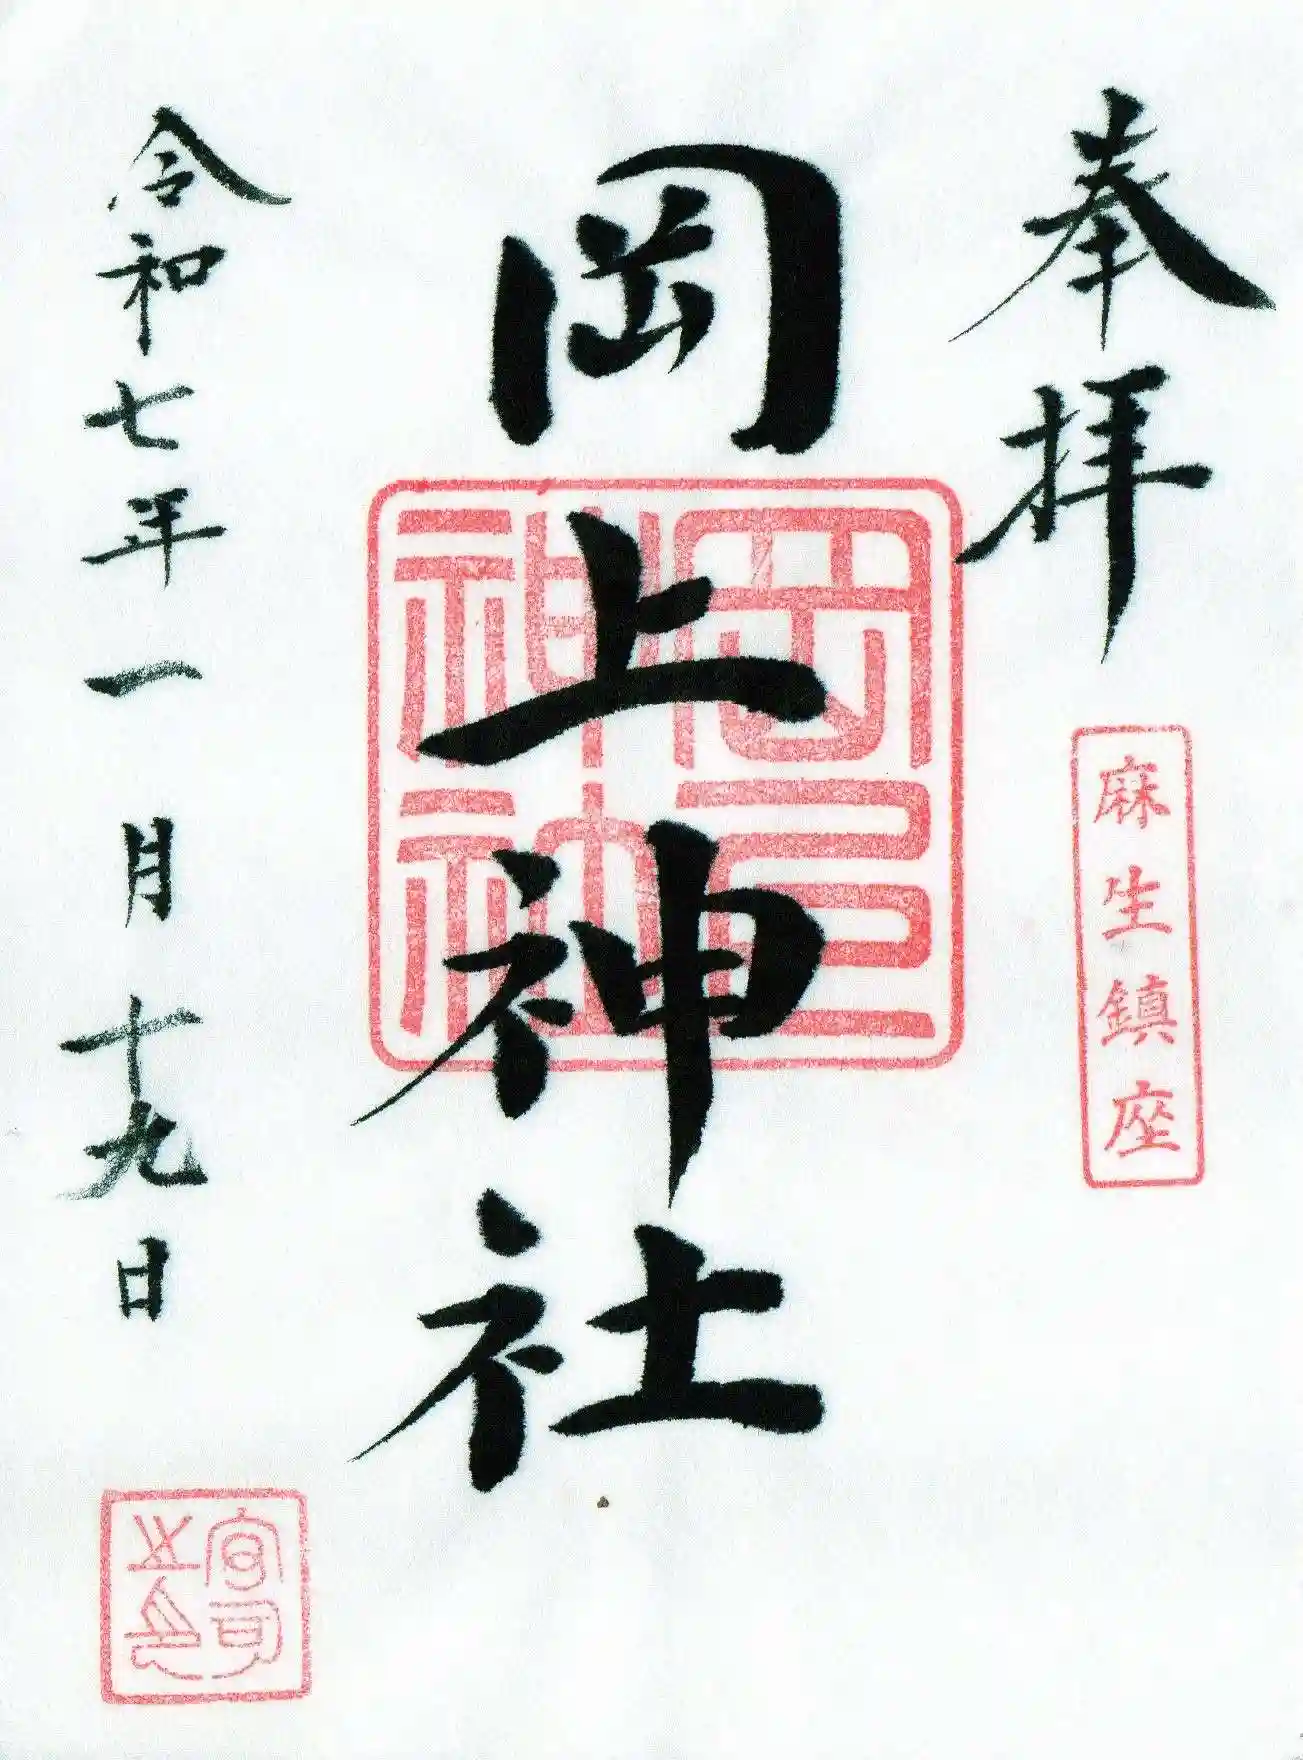 奉拝
麻生鎮座
岡上神社
岡上神社
令和七年一月十九日
宮司之印